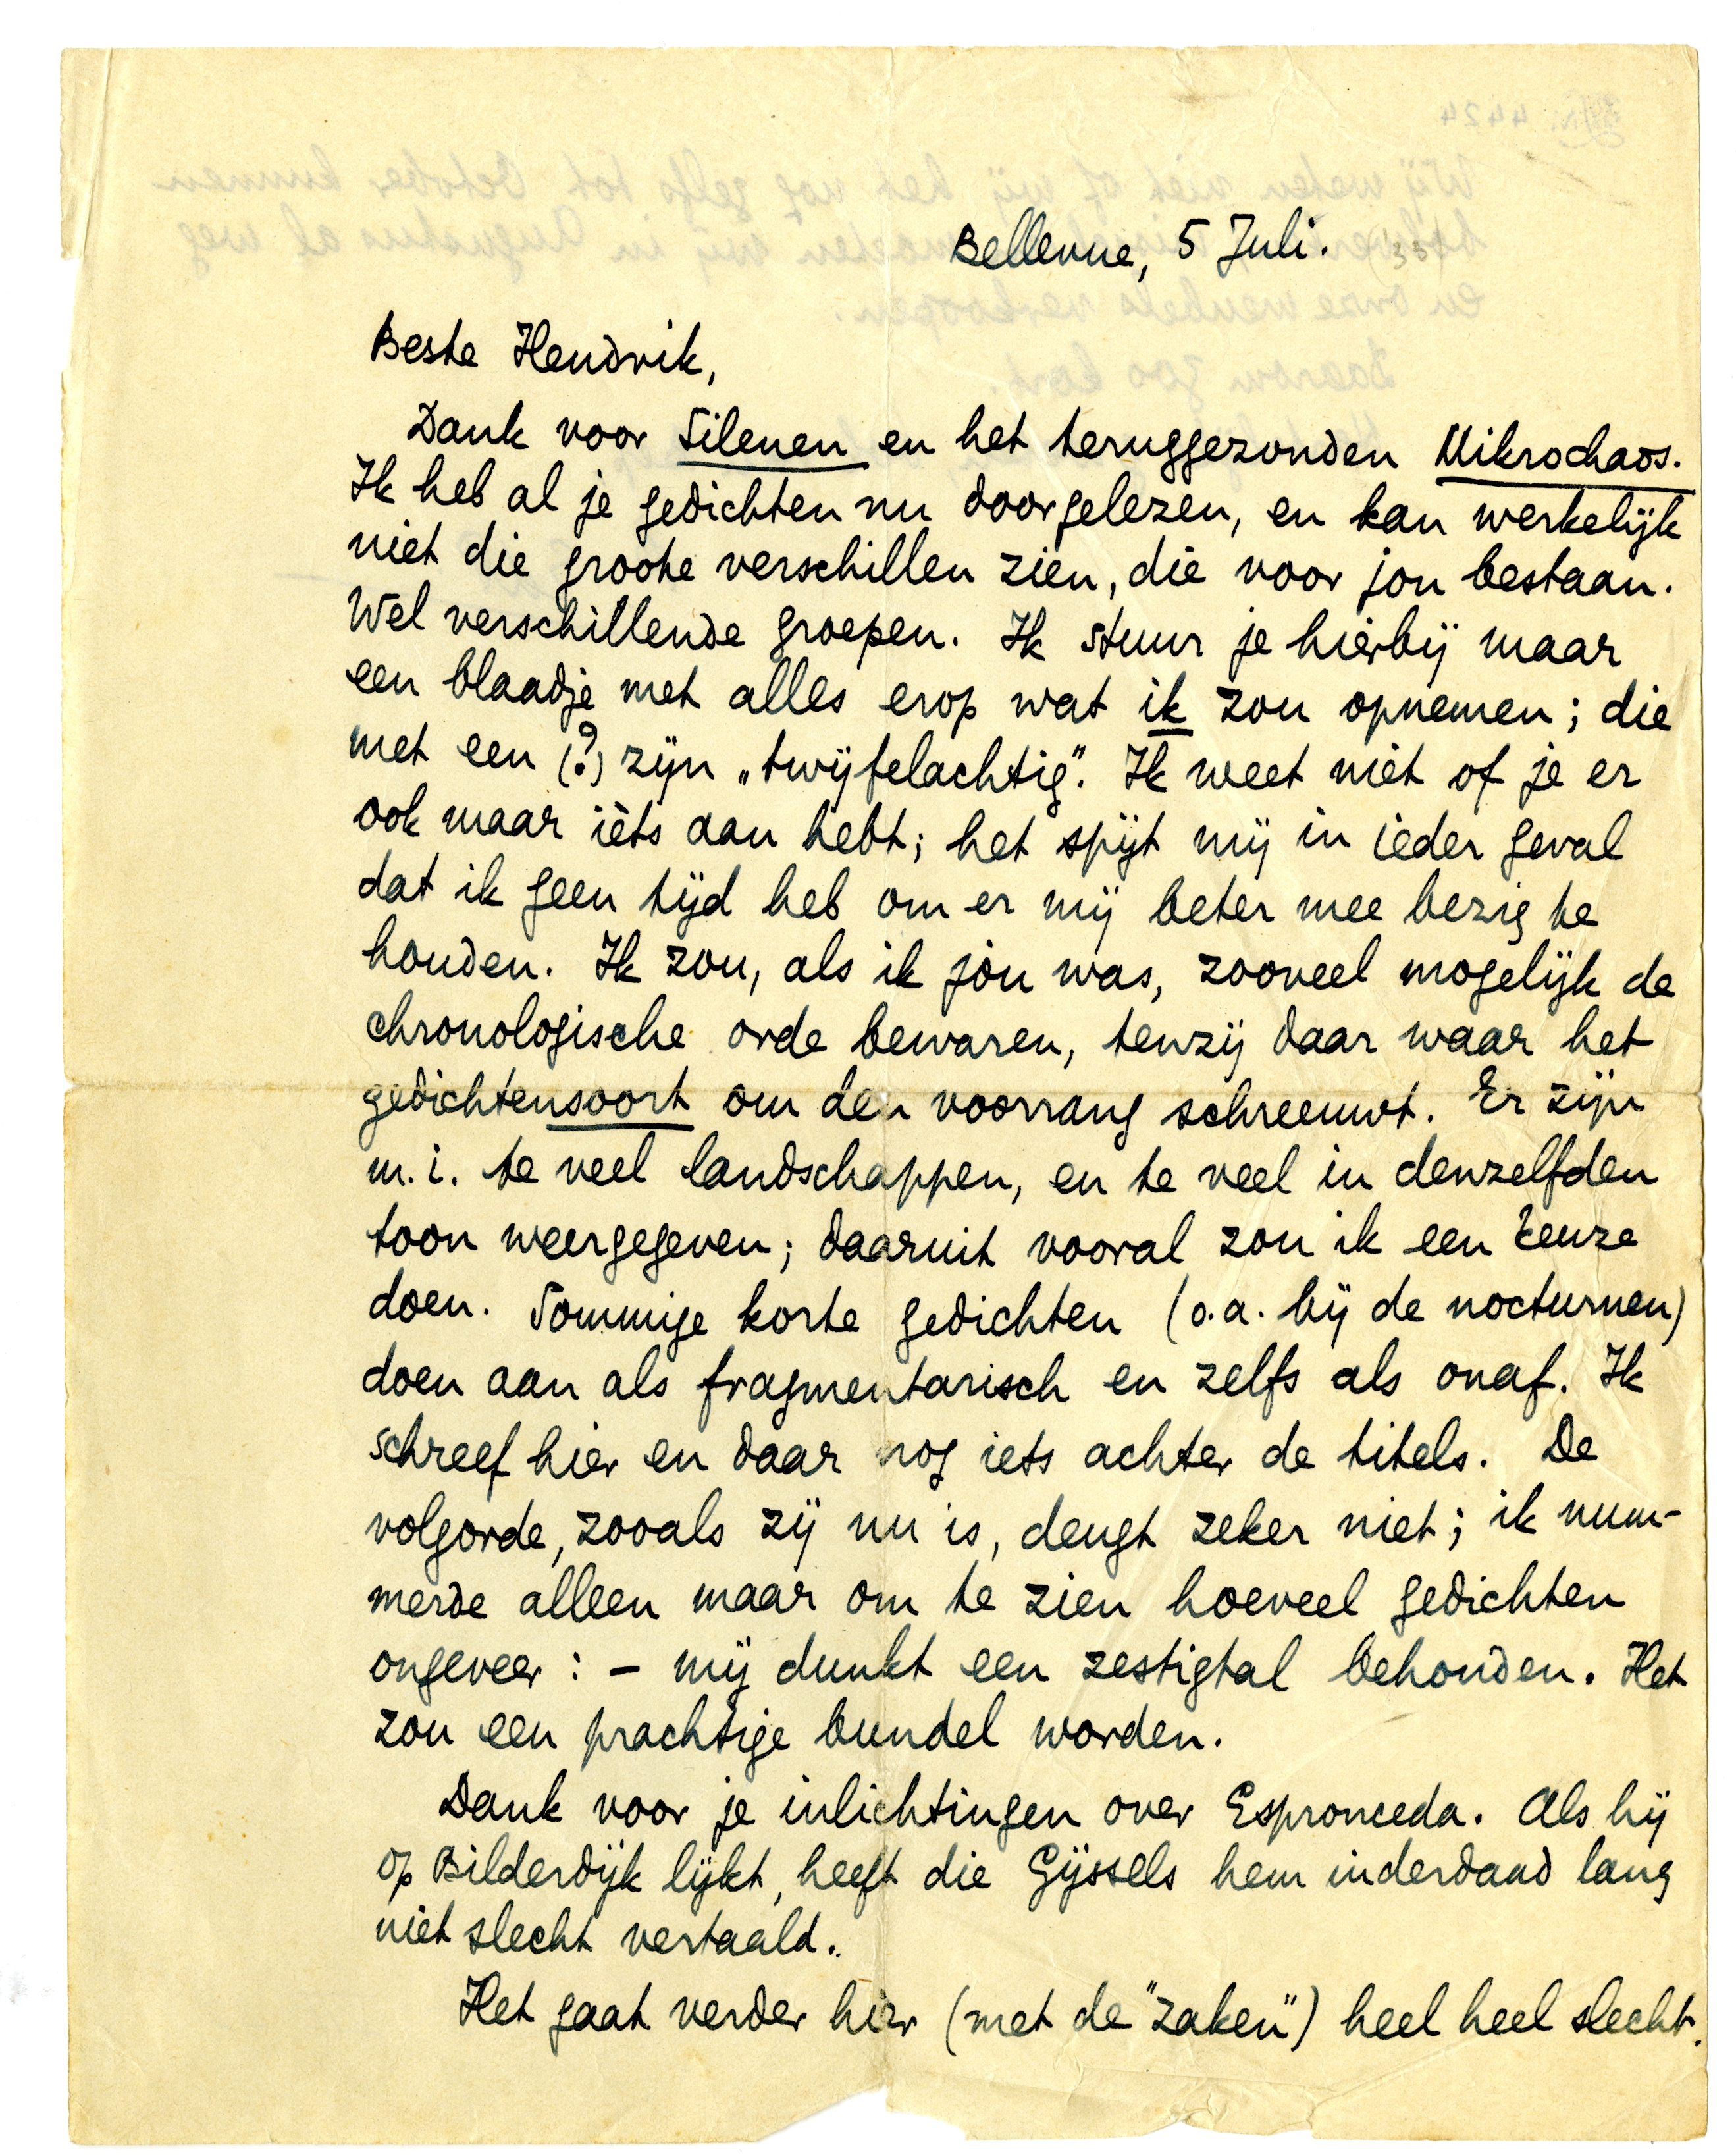 Bellevue, 5 Juli. ('33)
Beste Hendrik,
Dank voor Silenen en het teruggezonden Mikrochaos.
Ik heb al je gedichten nu doorgelezen, en kan werkelijk
niet die groote verschillen zien, die voor jou bestaan.
Wel verschillende groepen. Ik stuur je hierbij maar
een blaadje met alles erop wat ik zou opnemen; die
met een (?) zijn „twijfelachtig”. Ik weet niet of je er
ook maar ièts aan hebt; het spijt mij in ieder geval
dat ik geen tijd heb om er mij beter mee bezig te
houden. Ik zou, als ik jòu was, zooveel mogelijk de
chronologische orde bewaren, tenzij daar waar het
gedichtensoort om den voorrang schreeuwt. Er zijn
m.i. te veel landschappen, en te veel in denzelfden
toon weergegeven; daaruit vooral zou ik een keuze
doen. Sommige korte gedichten (o.a. bij de nocturnen)
doen aan als fragmentarisch en zelfs als onaf. Ik
schreef hier en daar nog iets achter de titels. De
volgorde, zooals zij nu is, deugt zeker niet; ik num-
merde alleen maar om te zien hoeveel gedichten
ongeveer: – mij dunkt een zestigtal behouden. Het
zou een prachtige bundel worden.
Dank voor je inlichtingen over Espronceda. Als hij
op Bilderdijk lijkt, heeft die Gijssels hem inderdaad lang
niet slecht vertaald..
Het gaat verder hier (met de "zaken") heel heel slecht.